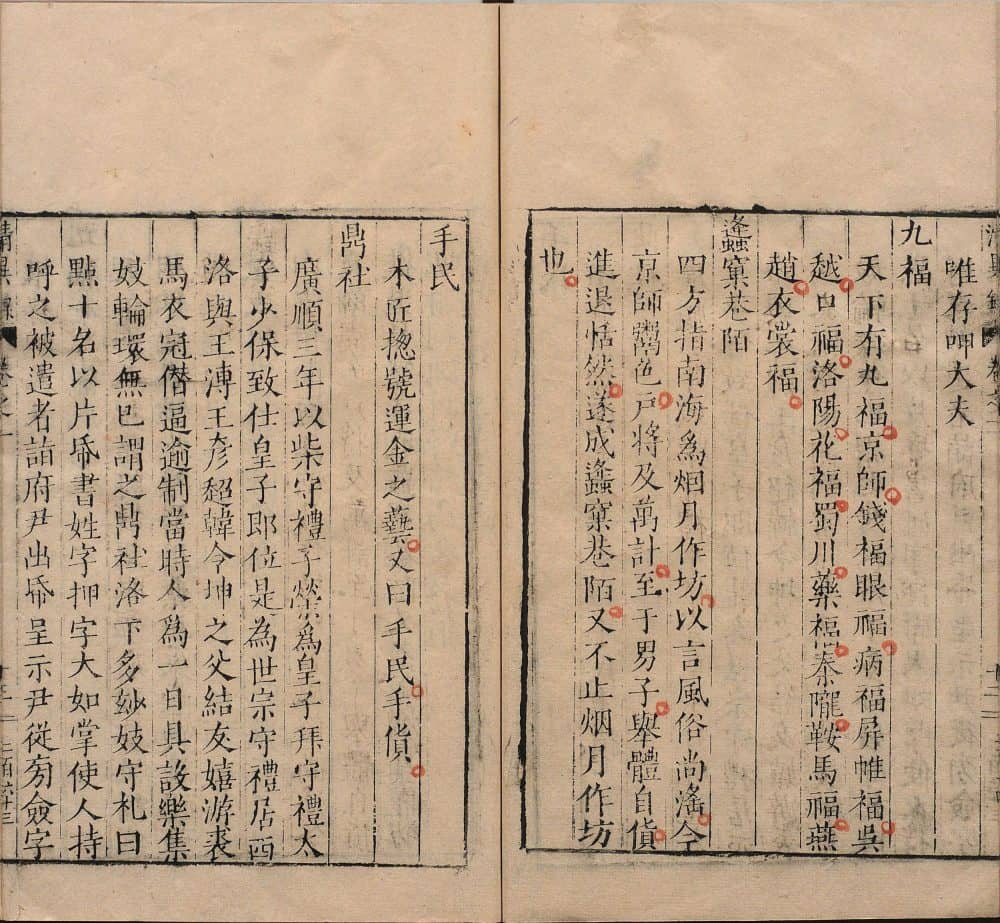 清異錄 卷之一
唯存呷大夫
九福
天下有九福京師錢福眼福病福屏帷福吳
越口福洛陽花福蜀川藥福秦隴鞍馬福燕
趙衣裳福
蠭窠巷陌
四方指南海為烟月作坊以言風俗尚滛今
京師鬻色戸將及萬計至于男子舉體自貨
進退恬然遂成蠭窠巷陌又不止烟月作坊
也
手民
木匠揔號運金之藝又曰手民手貨
鼎社
廣順三年以柴守禮子榮為皇子拜守禮太
子少保致仕皇子即位是為世宗守禮居西
洛與王溥王彦超韓令坤之父結友嬉游裘
馬衣冠僭逼逾制當時人為一日具設樂集
妓輪環無已謂之鼎社洛下多妙妓守札曰
點十名以片帋書姓字押字大如掌使人持
呼之被遣者詣府尹出帋呈示尹從旁僉字
清異錄 卷之一